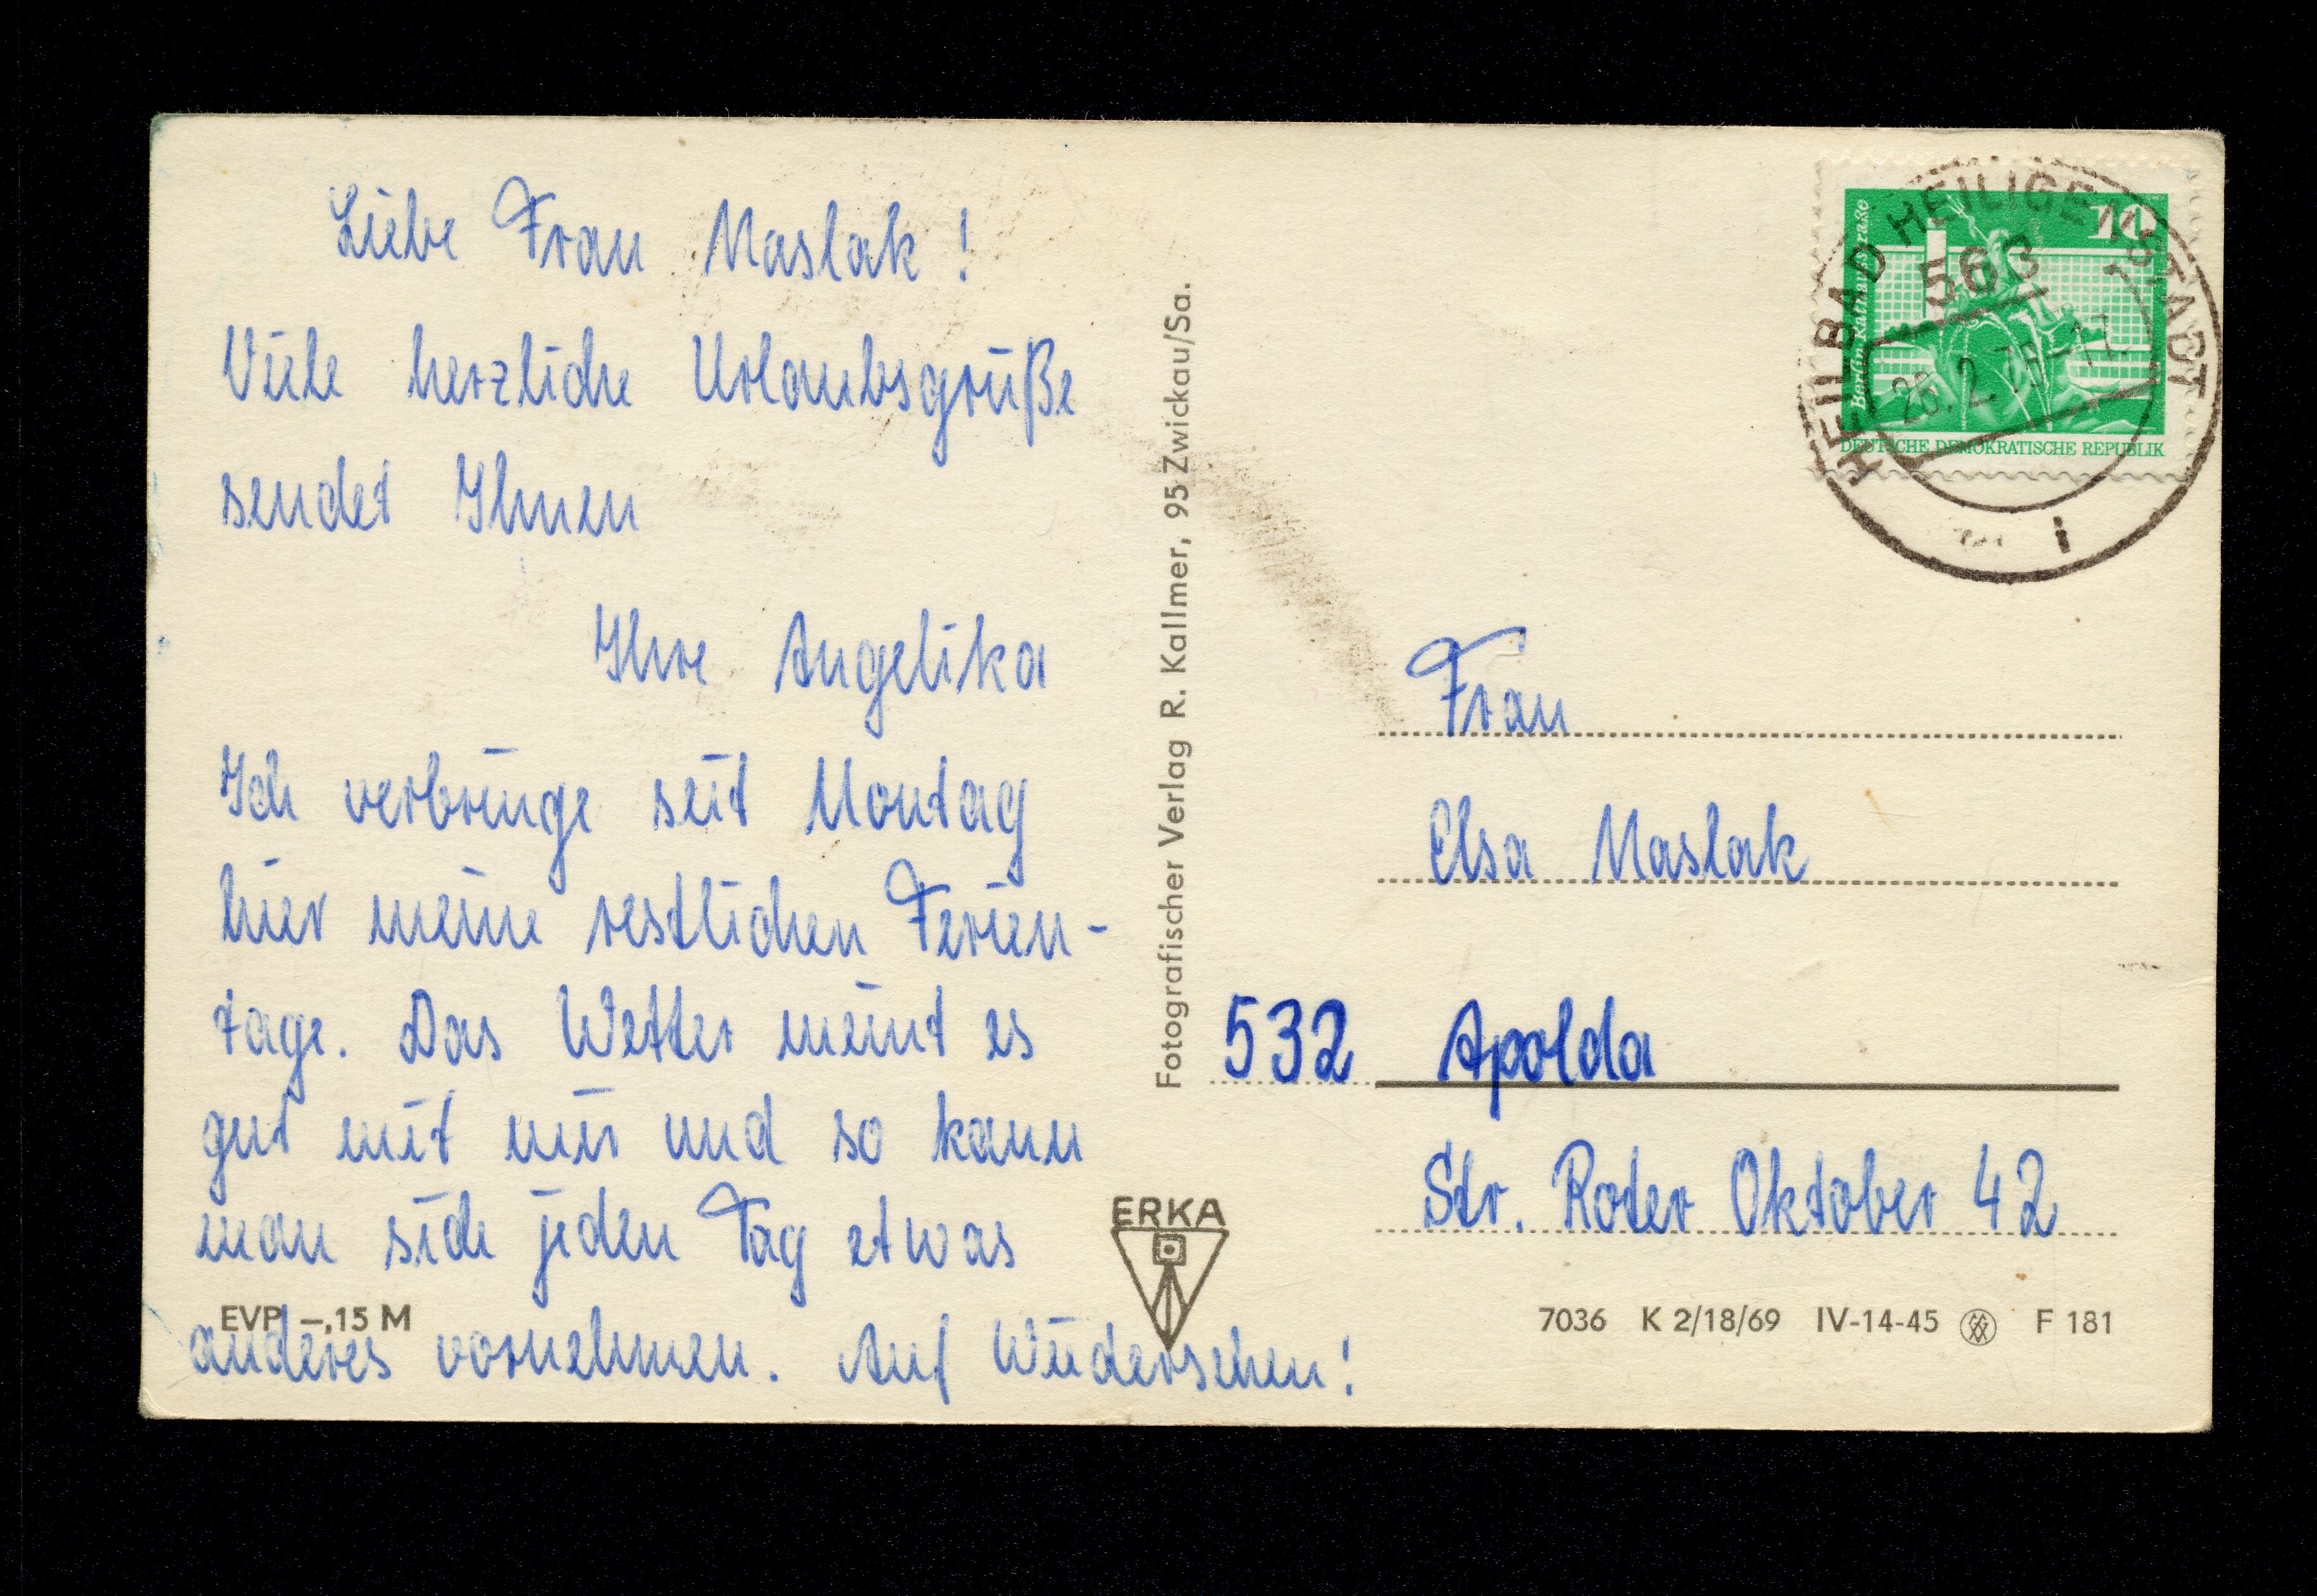 Liebe Frau Maslak!
Viele herzliche Urlaubsgrüße
sendet Ihnen
Ihre Angelika
Ich verbringe seit Montag
hier meine restlichen Ferien-
tage. Das Wetter meint es
gut mit mir und so kann
man sich jeden Tag etwas
anderes vornehmen. Auf Wiedersehen!
EVP -,15 M
Fotografischer Verlag R. Kallmer, 95 Zwickau/Sa.
ERKA
Berlin Rathausstraße
10
DEUTSCHE DEMOKRATISCHE REPUBLIK
HEILBAD HEILIGENSTADT
563
Frau
Elsa Maslak
532 Apolda
Str. Roter Oktober 42
7036 K 2/18/69 IV-14-45 F 181